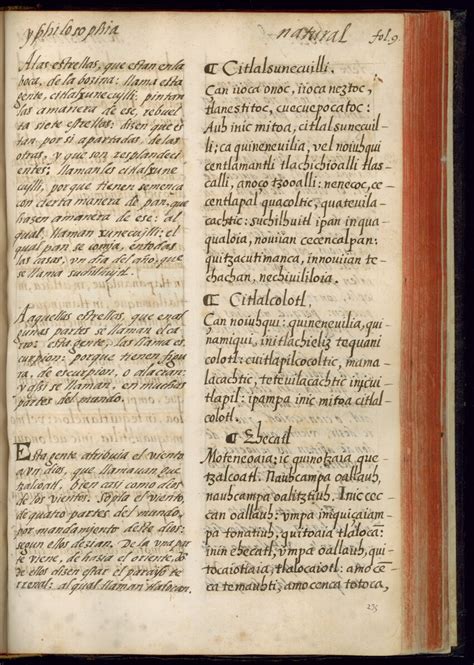 yphilosophia
natural
fol. 9.
Alas estrellas, que estan en la
boca, de la bozina: llama esta
gente, citlalxunecujlli: pintan
las amanera de ese, rebuel
ta siete estrellas: dizen que es
tan por si apartadas, de las
otras, y que son resplandeci
entes; llamanles citlalxune
cujlli, porque tienen semença
con cierta manera de pan, que
hazen amanera de ese: al
qual, llaman xunecujlli: el
qual pan se comja, en todas
las casas, vn dia del año, que
se llama suchilhujtl.
Aaquellas estrellas, que en al
gunas partes se llaman el ca
rro: esta gente, las llama es
curpion: porque tienen figu
ra, de escurpion, o alacran:
y asi se llaman, en muchas
partes del mundo.
Esta gente atribuia el viento
a vn dios, que llamauan que
tzalcoatl, bien asi como dios
de los vientos. Sopla el viento,
de quatro partes del mundo,
por mandamjento deste dios:
segun ellos dezian. De la vna par
te viene, de hazia el oriente, a
de ellos dizen estar el parayso te
rrenal: al qual llaman tlalocan.
¶ Citlalsunecuilli.
Can iioca onoc, iioca neztoc,
tlanestitoc, cuecuepocatoc:
Auh inic mitoa, citlalsunecuil-
li; ca quineneuilia, vel noiuhqui
centlamantli tlachichioalli tlas-
calli, anoço tzooalli: nenecoc, ce
centlapal quacoltic, quateuila-
cachtic: suchilhuitl ipan inqua-
qualoia, nouiian cecencalpan:
quitzacutimanca, innouiian te-
chachan, nechiuililoia.
¶ Citlalcolotl.
Can noiuhqui: quineneuilia, qui-
namiqui, initlachieliz tequani
colotl: cuitlapilcocoltic, mama-
lacachtic, teteuilacachtic injcui-
tlapil: ipampa inic mitoa citlal-
colotl.
¶ Ehecatl
Moteneoaia: ic quinotzaia, que-
tzalcoatl. Nauhcampa oallauh,
nauhcampa oalitztiuh. Inic cec-
can oallauh: vmpa iniquiçaiam-
pa tonatiuh, quitoaia tlalocā:
inin ehecatl, vmpa oallauh, qui-
tocaiotiaia, tlalocaiotl: amo cē-
ca temauhti, amo cenca totoca,